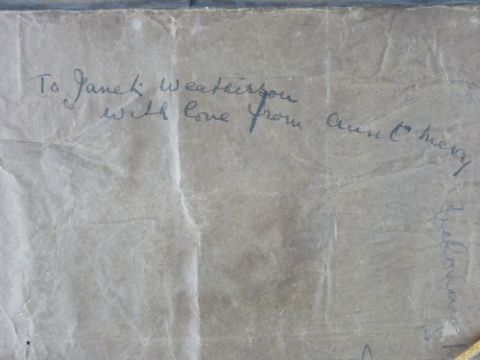 To Janet Weatherson
with love from Aunt Mercy